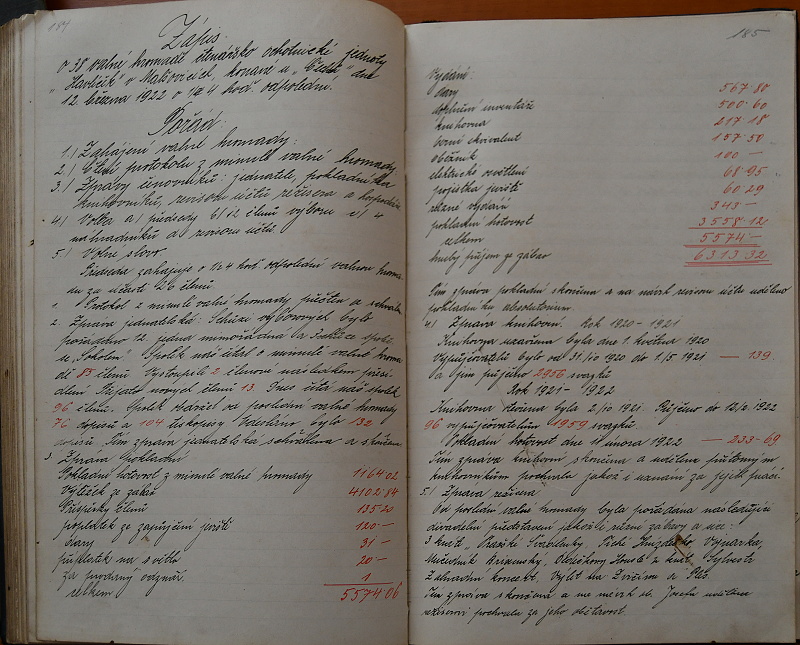 184
Zápis
o 38 valné hromadě čtenářsko ochotnické jednoty
„Havlíček" v Malšovicích, konané u „ dne
12. března 1922 o ½4 hod. odpoledne.
Pořad:
1./ Zahájení valné hromady:
2./ Čtení protokolu z minulé valné hromady.
3./ Zprávy činovníků: jednatele, pokladníka
knihovníků, revisorů účtů režisera a hospodáře
4./ Volba a/ předsedy b/ 12 členů výboru c/ 4
náhradníků d/ revisorů účtů.
5./ Volné slovo
Předseda zahajuje o ½4 hod. odpolední valnou hroma-
du za účasti 26 členů
1. Protokol z minulé valné hromady přečten a schválen
2. Zpráva jednatelská: Schůzí výborových bylo
pořádáno 12, jedna mimořádná a
u „Sokolem" Spolek náš čítal o minulé valné hroma-
dě 85 členů. Vystoupili 2 členové následkem přesí-
dlení Přijato nových členů 13. Dnes čítá náš spolek
96 členů. Spolek obdržel od poslední valné hromady
76 dopisů a 104 tiskopisy Odesláno bylo 132
dopisů. Tím zpráva jednatelská schválena a skončena
3. Zpráva pokladní
Pokladní hotovost z minulé valné hromady 1164·02
Výtěžek ze zábav 4102·84
Příspěvky členů 135·20
poplatek ze zapůjčení jeviště 120—
dary 31—
příplatek na světlo 20—
za prodaný 1
celkem 5574·06
185
Vydání:
dary 567·80
doplnění inventáře 500·60
knihovna 217·18
157·50
občerník 100—
elektrické osvětlení 68·95
pojistka jeviště 60·29
různé vydání 343—
pokladní hotovost 3558·12
celkem 5574—
hrubý příjem ze zábav 6313·32
Tím zpráva pokladní skončena a na návrh revisorů účtů uděleno
pokladníku absolutorium.
4./ Zpráva knihovní. Rok 1920–1921
Knihovna uzavřena byla dne 1. května 1920
Vypůjčovatelů bylo od 31/10 1920 do 1./5 1921 — 139.
a jim půjčeno 2956 svazků
Rok 1921–1922
Knihovna otevřena byla 2/10 1921. Půjčeno do 12/2 1922
96 vypůjčovatelům 1959 svazků.
Pokladní hotovost dne 11 února 1922 — 233–69
Tím zpráva knihovní skončena a udělena přítomným
knihovníkům pochvala jakož i uznání za jejich práci.
5./ Zpráva režisera
Od poslední valné hromady byla pořádána následující
divadelní představení jakožto různé zábavy a sice:
3 květ. „Pražské Švadlenky" Tiché Hnízdečko, Vojnarka,
z květ. Sylvestr
Zahradní koncert. Výlet na Zvičinu, Ples.
Tím zpráva skončena a na návrh sl. Josefů udělena
režisérovi pochvala za jeho obětavost.